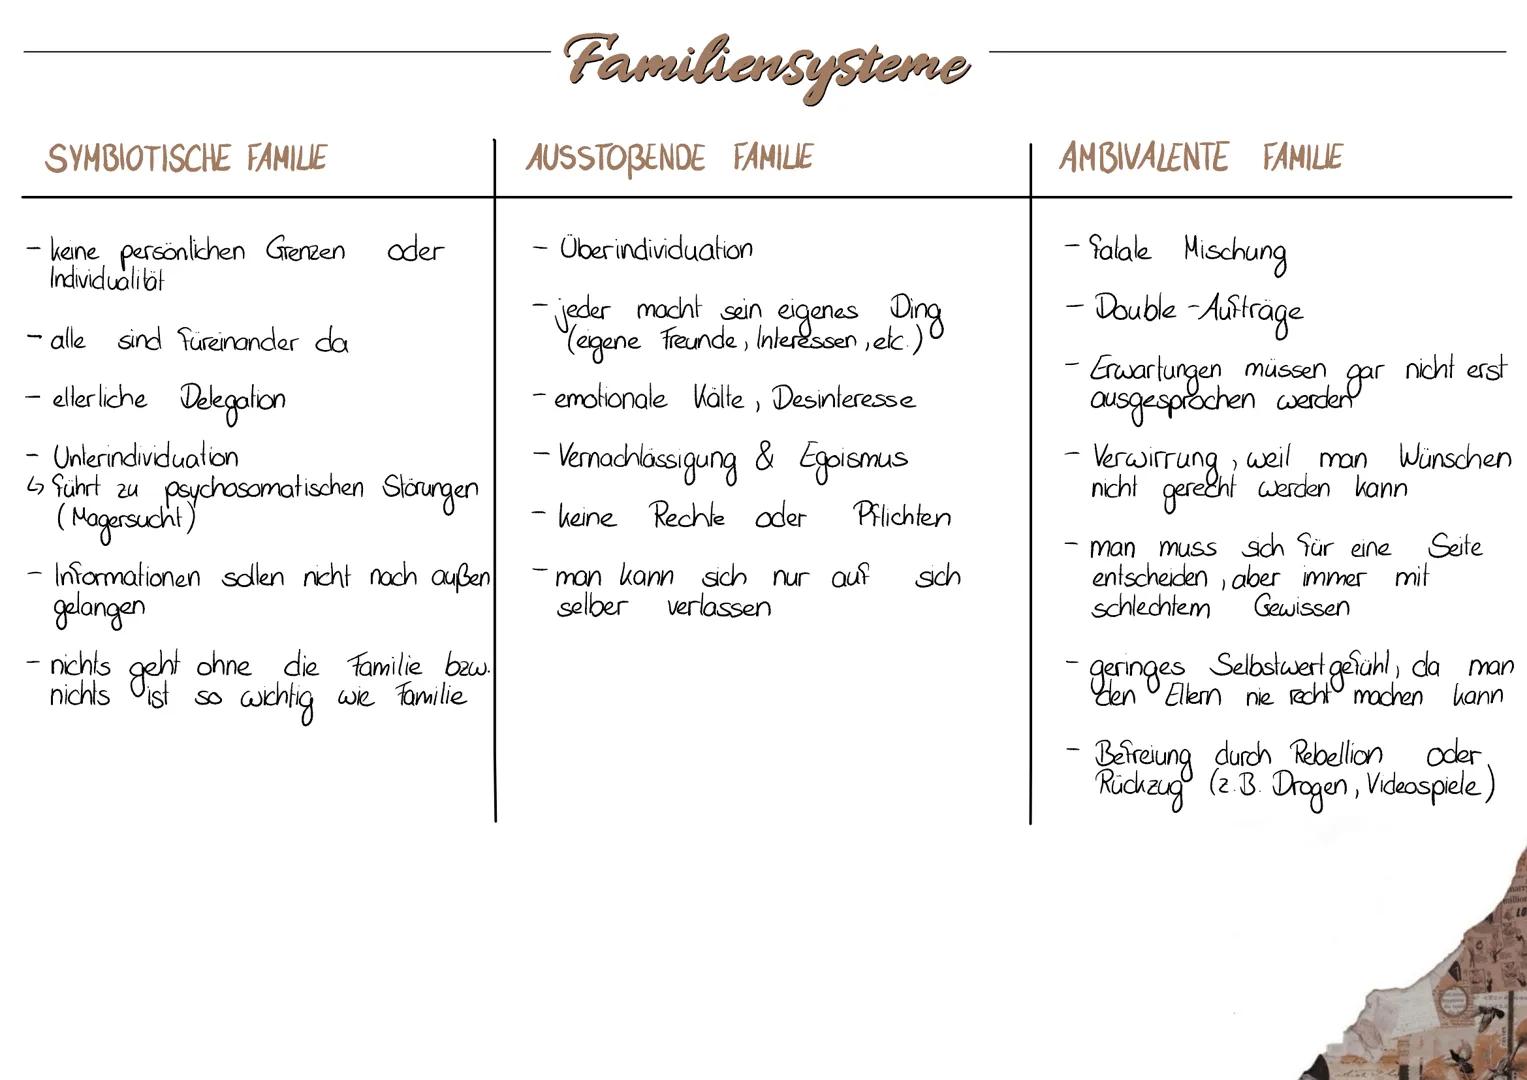 Familiensysteme
SYMBIOTISCHE FAMILIE
- keine persönlichen Grenzen oder
Individualität
- alle sind füreinander da
- elterliche Delegation
- Unterindividuation
↳ führt zu psychosomatischen Störungen
(Magersucht)
- Informationen sollen nicht nach außen
gelangen
- nichts geht ohne die Familie bzw.
nichts ist so wichtig wie Familie
AUSSTOßENDE FAMILIE
- Überindividuation
- jeder macht sein eigenes Ding
(eigene Freunde, Interessen, etc.)
- emotionale Kälte, Desinteresse
- Vernachlässigung & Egoismus
- keine Rechte oder Pflichten
- man kann sich nur auf sich
selber verlassen
AMBIVALENTE FAMILIE
- fatale Mischung
- Double-Aufträge
- Erwartungen müssen gar nicht erst
ausgesprochen werden
- Verwirrung, weil man Wünschen
nicht gerecht werden kann
- man muss sich für eine Seite
entscheiden, aber immer mit
schlechtem Gewissen
- geringes Selbstwertgefühl, da man
den Eltern nie recht machen kann
- Befreiung durch Rebellion oder
Rückzug (z.B. Drogen, Videospiele)